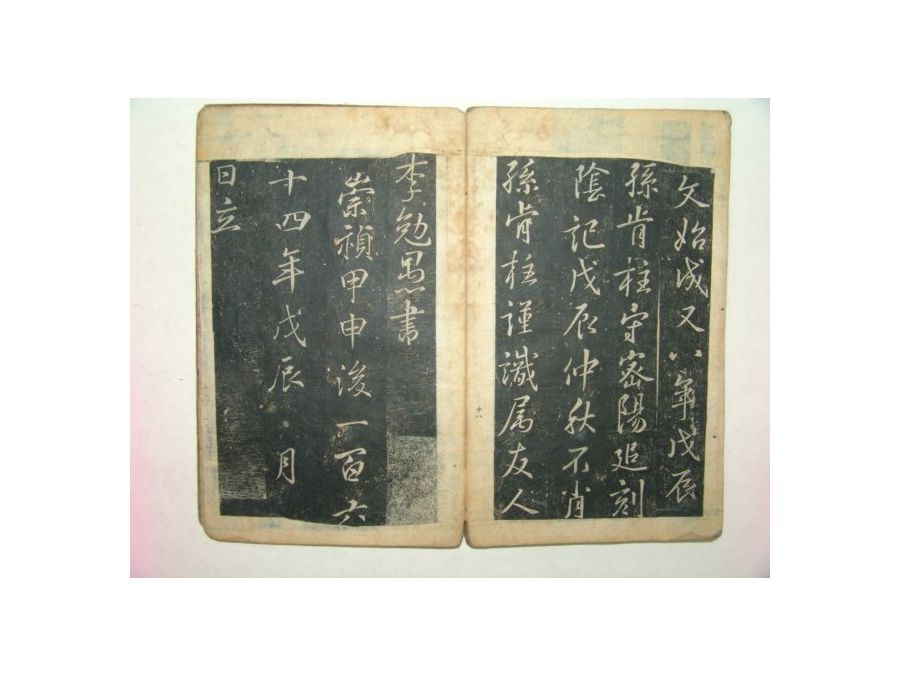 文始成又八年戊辰
孫肯柱守密陽追刻
陰記戊辰仲秋不肖
孫肯柱謹識属友人
李勉愚書
崇禎甲申後一百六
十四年戊辰 月
日立